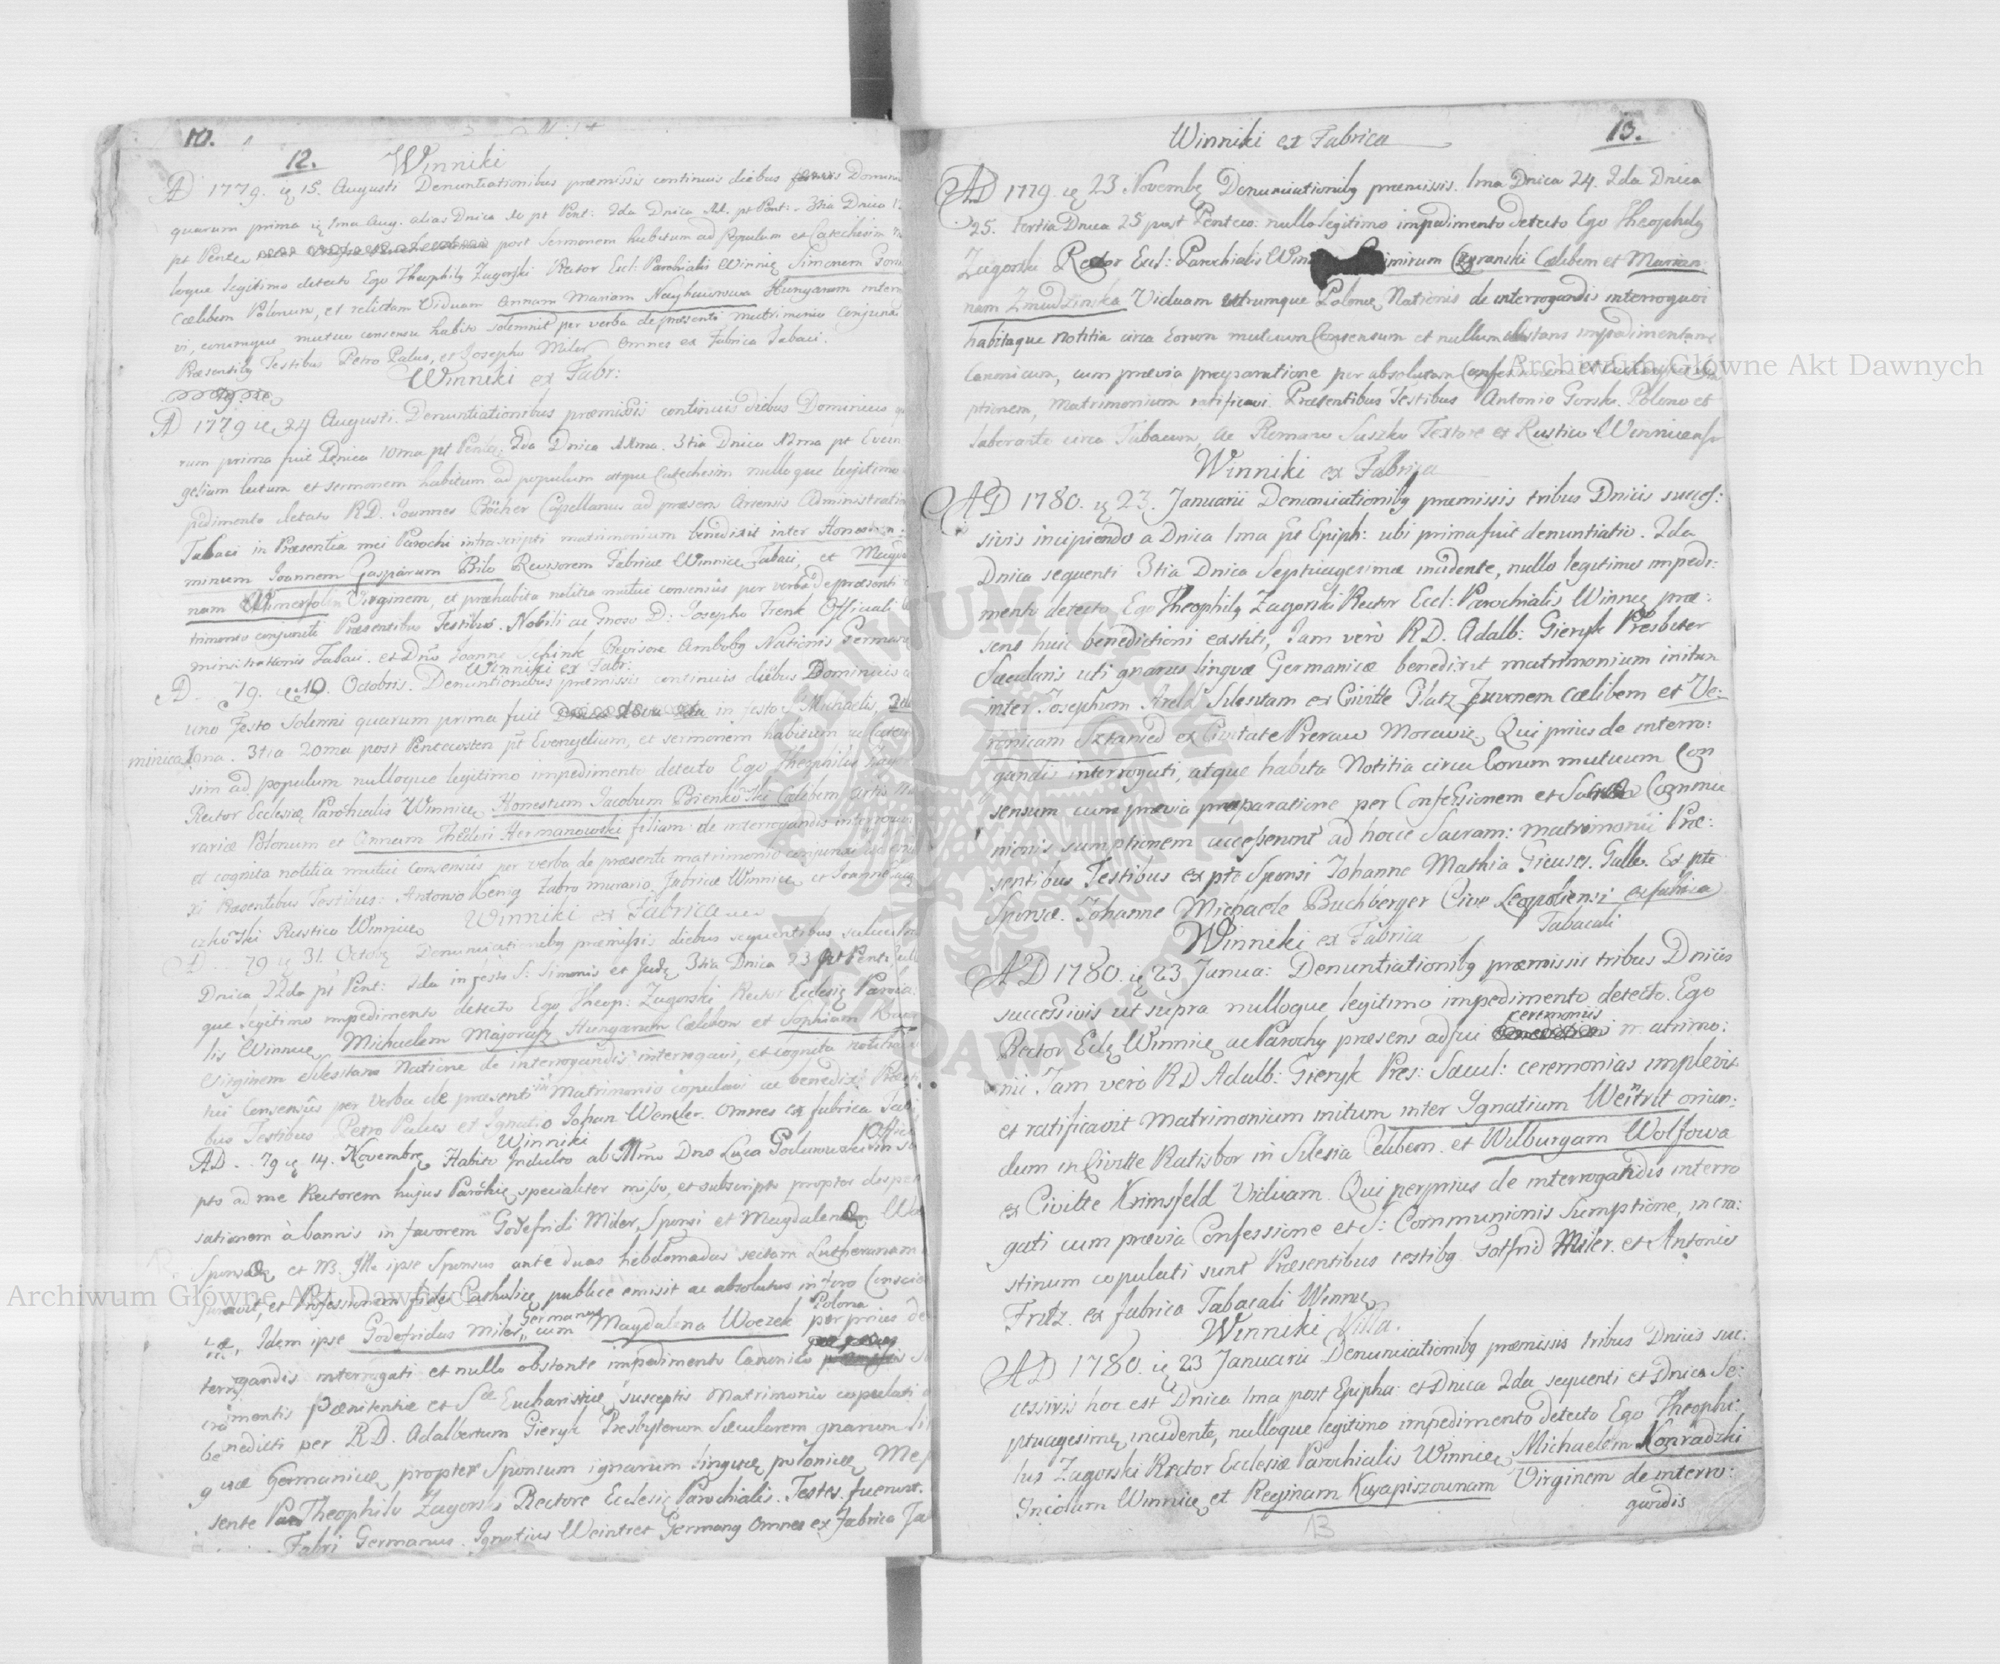 10.
12. Winniki
AD 1779. ię 15. Augusti Denuntiationibus præmissis continuis diebus Domini
quarum prima ię 1ma Aug. alias Dnica 10 pt Pent: 2da Dnica XI. pt Pent: 3tia Dnica
pt Pente post Sermonem habitum ad Populum et Catechesim
loque legitimo detecto Ego Theophily Zagorski Rector Eccl: Parochialis Winnię Simonem
Cælibem Polonum, et relictam Viduam Annam Mariam Hungaram inter
vi, eorumque mutuo consensu habito solemnit per verba de præsenti matrimonio Conjunxi
Præsentiby Testibus Petro Palus, et Josepho Miler omnes ex Fabrica Tabaci.
Winniki ex Fabr:
AD 1779 ię 24 Augusti. Denuntiationibus præmissis continuis diebus Dominicis
rum prima fuit Dnica 10ma pt Pente: 2da Dnica XIma. 3tia Dnica 12ma pt Evan
gelium lectum et sermonem habitum ad populum atque Catechesim nulloque legitimo
pedimento detecto R.D. Joannes Böcher Capellanus ad præsens Administrationis
Tabaci in Præsentia mei Parochi infrascripti matrimonium benedixit inter Honestum
minum Joannem Gasparum Bilo Revisorem Fabricæ Winnicę Tabaci, et Magda
nam Virginem, et præhabita notitia mutui consensûs per verba de præsenti
trimonio conjuncti Præsentibus Testibus. Nobili ac Gnoso D: Josepho Trenk Officiali
ministrationis Tabaci. et Dno Joanne Schink Revisore Amboby Nationis Germanę
Winniki ex Fabr:
AD. 79. ię 10. Octobris. Denuntiationibus præmissis continuis diebus Dominicis
uno Festo Solemni quarum prima fuit in festo S. Michaelis, 2da
minica 19na. 3tia 20ma post Pentecosten pt Evangelium, et sermonem habitum ac Cateche
sim ad populum nulloque legitimo impedimento detecto Ego Theophilus Zagor
Rector Ecclesiæ Parochialis Winnicę Honestum Jacobum Bienkowski Cælibem artis
rariæ Polonum et Annam Hermanowski filiam de interrogandis interrogavi
et cognita notitia mutui consensûs per verba de præsenti matrimonio conjunxi
xi Præsentibus Testibus: Antonio Kenig Fabro murario Fabricæ Winnicę et Joanne
Rustico Winnicę
Winniki ex Fabrica
AD. 79 ię 31. Octobę Denunciationiby præmissis diebus sequentibus
Dnica 22da pt Pent: 2da in festo S: Simonis et Judę 3tia Dnica 23 pt Pent: null
que legitimo impedimento detecto Ego Theop: Zagorski Rector Ecclesię Parochia
lis Winnicę Michaelem Majoratz Hungarum Cælibem et Sophiam
Virginem Silesitana Natione de interrogandis interrogavi, et cognita notitia
tui Consensûs per Verba de præsenti in Matrimonio copulavi ac benedixi Præsenti
bus Testibus Petro Palus et Ignatio Johan Wenzler. omnes ex fabrica
Winniki
AD. 79 ię 14. Novembrę Habito Indulto ab Illmo Dno Luca
pto ad me Rectorem hujus Parochię specialiter misso, et subscripto propter dispen
sationem à bannis in favorem Godefridi Miler, Sponsi et Magdalenæ
Sponsæ et NB. Ille ipse Sponsus ante duas hebdomadas sectam Lutheranam
et Professionem fidei Catholicę publice emisit ac absolutus in foro Conscien
Idem ipse Godefridus Miler Germanus cum Magdalena Woczek Polona per prius de
terrogandis interrogati et nullo obstante impedimento Canonico
cramentis Pænitentiæ et Sæ Eucharistiæ susceptis Matrimonio copulati
benedicti per R.D. Adalbertum Gieryk Presbyterum Sæcularem gnarum lin
guæ Germanicæ, propter Sponsum ignarum linguæ polonicæ, Me
sente Theophilo Zagorski Rectore Ecclesię Parochialis. Testes fuerunt
Fabri Germanus. Ignatius Weintret Germany omnes ex Fabrica
Winniki ex Fabrica 13.
AD 1779. ię 23 Novembę Denunciationiby præmissis. 1ma Dnica 24. 2da Dnica
25. tertia Dnica 25 post Pentecos: nullo legitimo impedimento detecto Ego Theophily
Zagorski Rector Eccl: Parochialis Win imirum Czeranski Cælibem et Marian
nam Zmudzinska Viduam utrumque Polonę Nationis de interrogandis interrogavi
habitaque notitia circa Eorum mutuum Consensum et nullum obstans impedimentum
Canonicum, cum prævia præparatione per absolutam Confessionem et
ptionem, Matrimonium ratificavi. Præsentibus Testibus Antonio Gorski Polono et
laborante circa Tabacum, ac Romano Suszko Textore et Rustico Winnicensi
Winniki ex Fabrica
AD 1780. ię 23. Januarii Denunciationiby præmissis tribus Dniis succes:
sivis incipiendo a Dnica 1ma pt Epiph: ubi prima fuit denuntiatio. 2da
Dnica sequenti 3tia Dnica Septuagesimæ incidente, nullo legitimo impedi:
mento detecto Ego Theophily Zagorski Rector Eccl: Parochialis Winnię præ:
sens huic benedictioni exstiti, Jam verò R.D. Adalb: Gieryk Presbiter
Sæcularis uti gnarus linguæ Germanicæ benedixit matrimonium initum
inter Josephum Silesitam ex Civitte Glatz Juvenem cælibem et Ve:
ronicam Sztanied ex Civitate Prerau Moraviæ, Qui prius de interro:
gandis interrogati, atque habita Notitia circa Eorum mutuum Con
sensum cum prævia præparatione per Confessionem et Commu
nionis sumptionem accesserunt ad hocce Sacram: matrimonii Præ:
sentibus Testibus ex pte Sponsi Johanne Mathia Gieuses. Gallo. Ex pte
Sponsæ. Johanne Michaele Buchberger Cive Leopoliensi ex fabrica
Tabacali
Winniki ex Fabrica
AD 1780. ię 23 Janua: Denuntiationiby præmissis tribus Dniis
successivis ut supra nulloque legitimo impedimento detecto. Ego
Rector Eclę Winnicę ac Parochy præsens adfui ceremoniis matrimo:
nii Jam verò RD Adalb: Gieryk Pres: Sæcul: ceremonias implevit
et ratificavit Matrimonium initum inter Ignatium Weitrlt oriun:
dum in Civitte Ratisbor in Silesia Cælibem. et Wilburgam Wolfowa
ex Civitte Krimsfeld Viduam. Qui perprius de interrogandis interro
gati cum prævia Confessione et S: Communionis Sumptione, in cra:
stinum copulati sunt Præsentibus testiby Gotfrid Miler. et Antonio
Fritz. ex fabrica Tabacali Winnię
Winniki Villa.
AD 1780. ię 23 Januarii Denunciationiby præmissis tribus Dniis suc:
cessivis hoc est Dnica 1ma post Epipha: et Dnica 2da sequenti et Dnica Se:
ptuagesimę incidente, nulloque legitimo impedimento detecto Ego Theophi:
lus Zagorski Rector Ecclesiæ Parochialis Winnicę Michaelem Konradzki
Incolam Winnicę et Reginam Kurapiszownam Virginem de interro:
gandis
13
Archiwum Główne Akt Dawnych
Archiwum Główne Akt Dawnych
ARCHIWUM GŁÓWNE AKT DAWNYCH